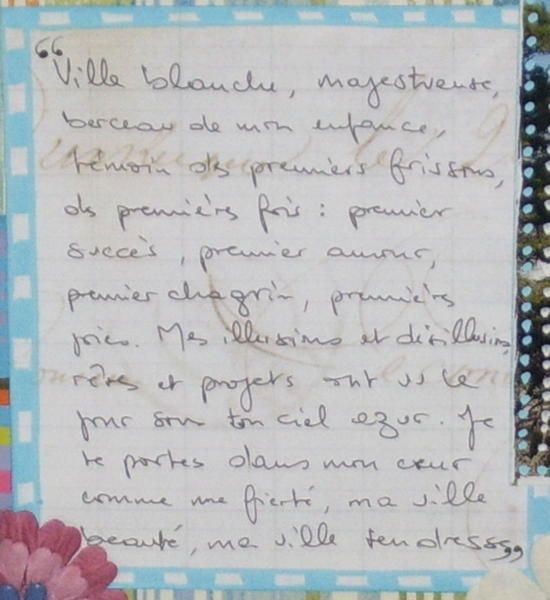 “Ville blanche, majestueuse,
berceau de mon enfance,
témoin des premiers frissons,
des premières fois : premier
succès, premier amour,
premier chagrin, premières
joies. Mes illusions et désillusions,
rêves et projets ont vu le
jour sous ton ciel azur. Je
te portes dans mon cœur
comme une fierté, ma ville
beauté, ma ville tendresse”